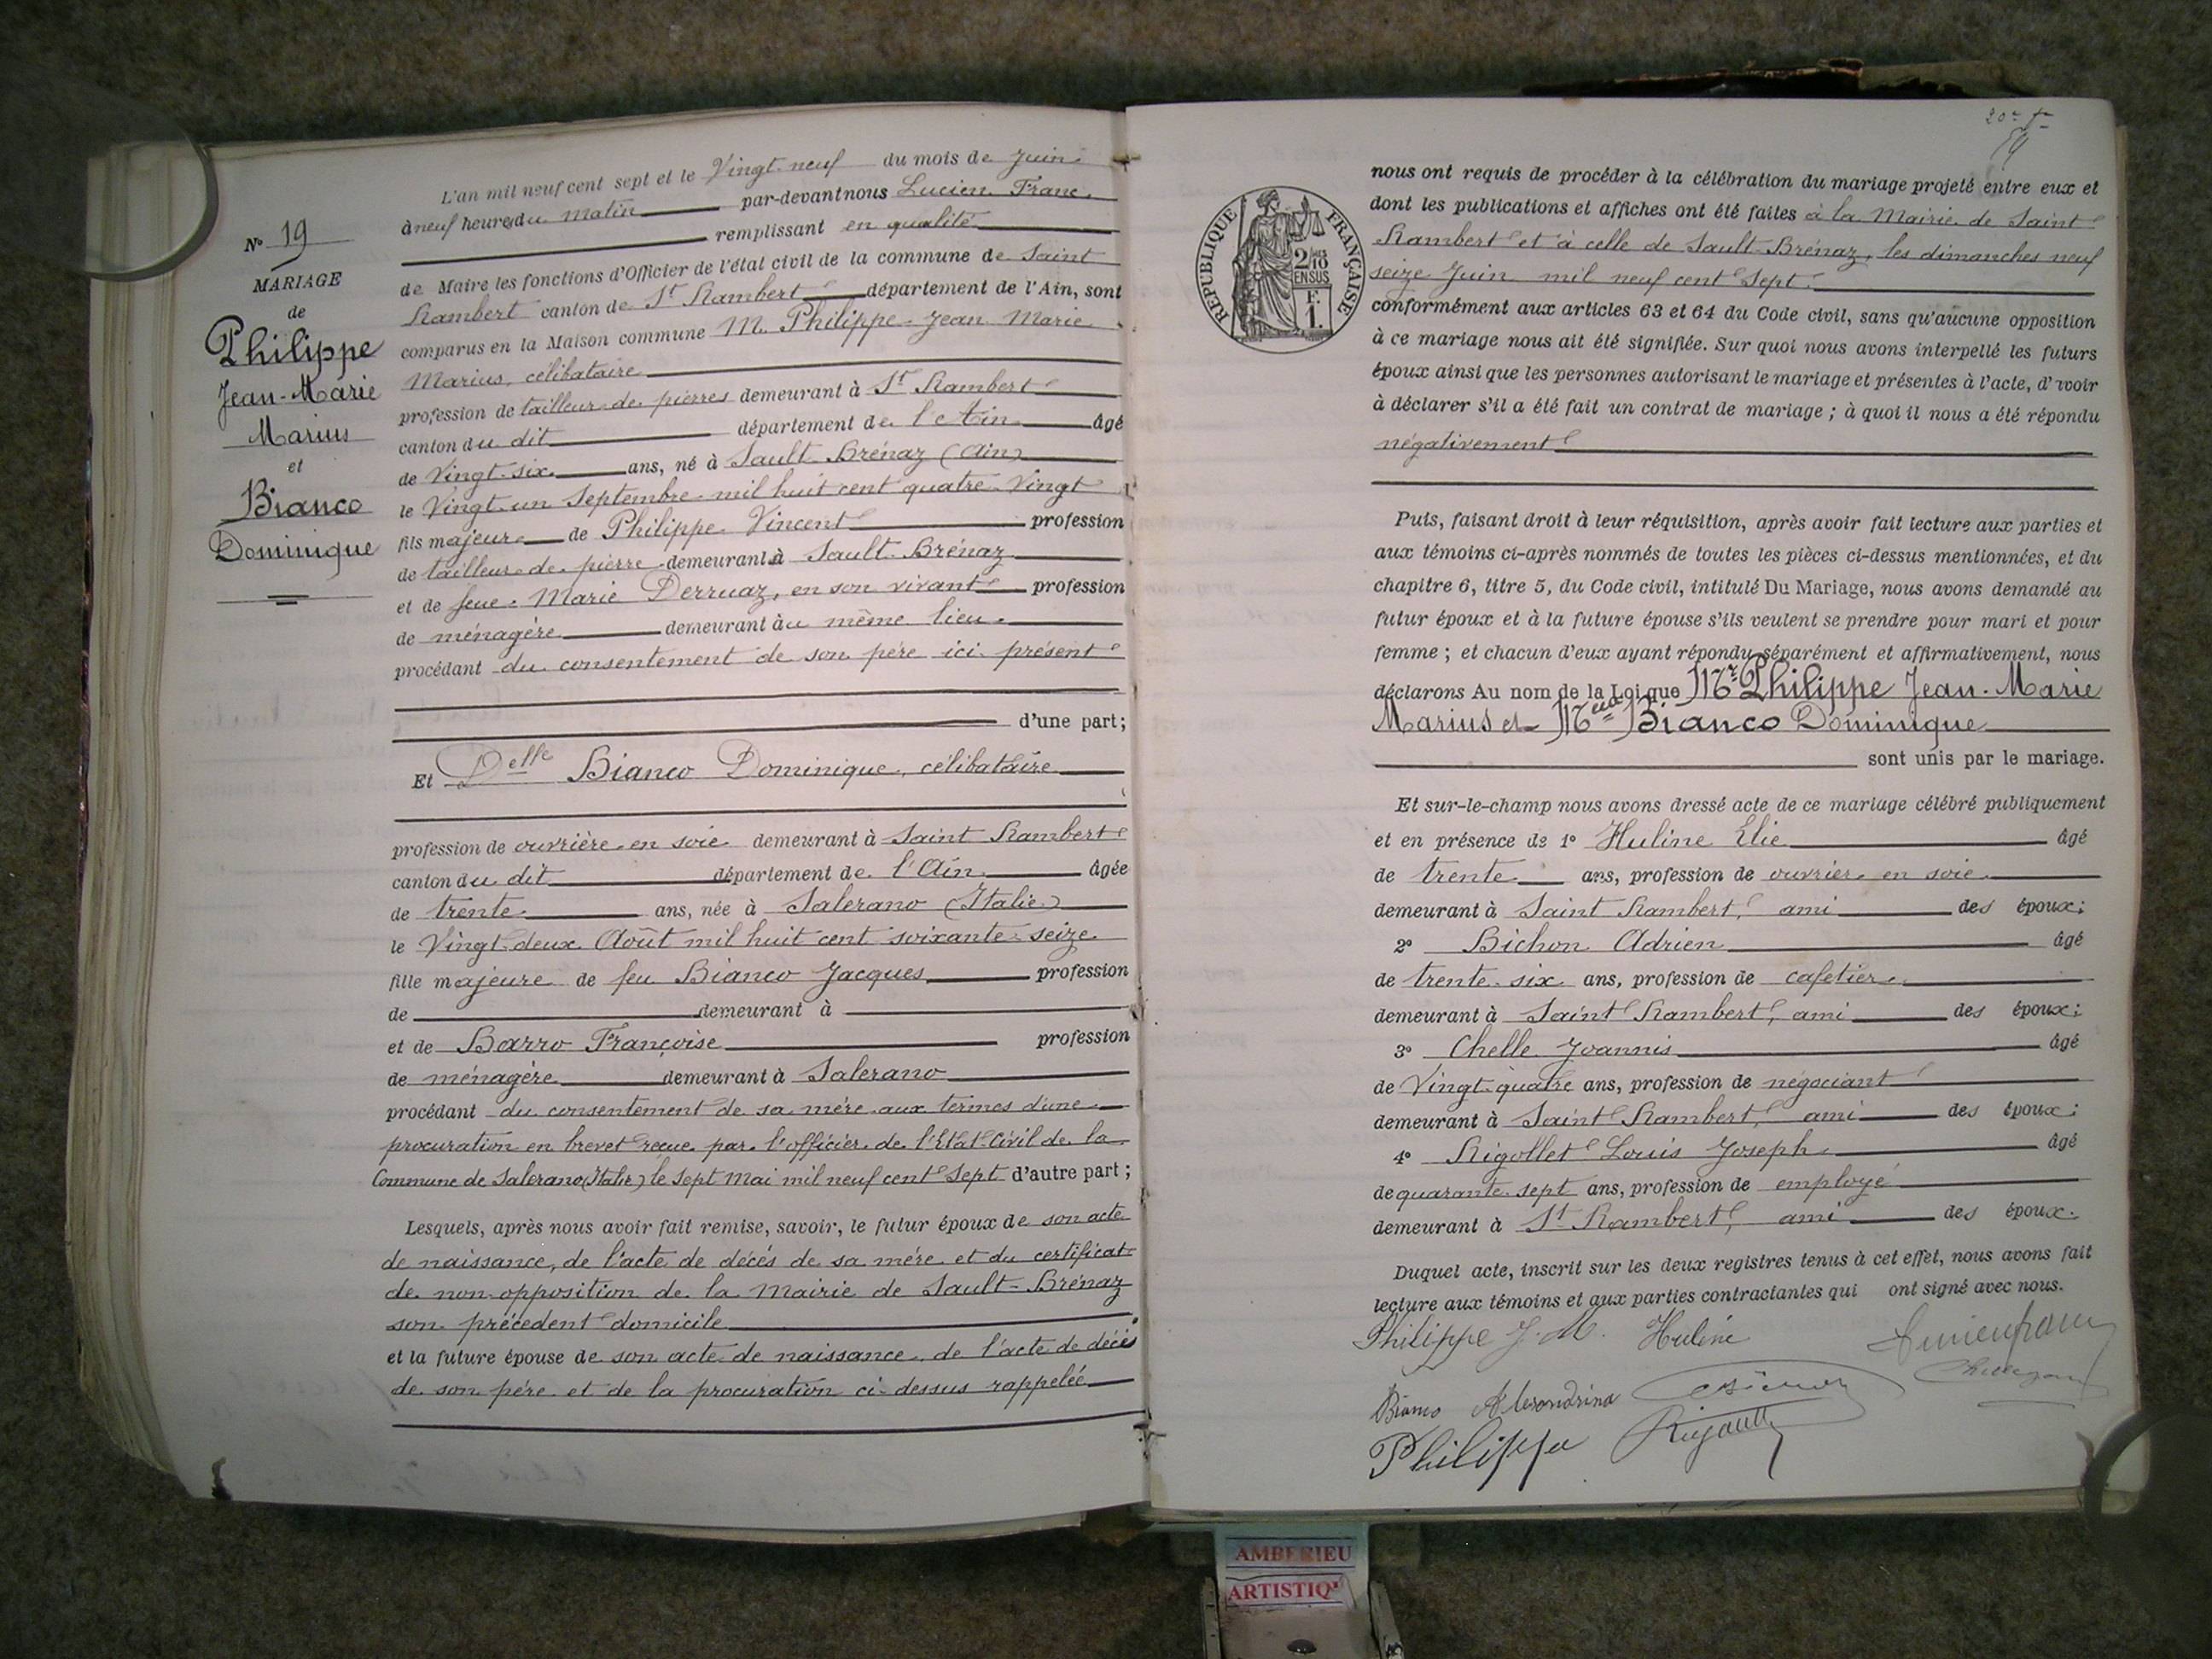 N° 19
MARIAGE
de
Philippe
Jean-Marie
Marius
et
Bianco
Dominique
L'an mil neuf cent sept et le Vingt-neuf du mois de Juin
à neuf heures du matin par-devant nous Lucien Franc,
remplissant en qualité
de Maire les fonctions d'Officier de l'état civil de la commune de Saint
Rambert canton de St Rambert département de l'Ain, sont
comparus en la Maison commune M. Philippe Jean Marie
Marius, célibataire
profession de tailleur de pierres demeurant à St Rambert
canton du dit département de l'Ain âgé
de Vingt-six ans, né à Sault-Brénaz (Ain)
le Vingt-un Septembre mil huit cent quatre-Vingt
fils majeur de Philippe Vincent profession
de tailleur de pierre demeurant à Sault-Brénaz
et de feue Marie Derruaz, en son vivant profession
de ménagère demeurant au même lieu
procédant du consentement de son père ici présent
d'une part;
Et Delle Bianco Dominique, célibataire
profession de ouvrière en soie demeurant à Saint Rambert
canton du dit département de l'Ain âgée
de trente ans, née à Salerano (Italie)
le Vingt-deux Août mil huit cent soixante-seize
fille majeure de feu Bianco Jacques profession
de demeurant à
et de Barro Françoise profession
de ménagère demeurant à Salerano
procédant du consentement de sa mère aux termes d'une
procuration en brevet reçue par l'officier de l'Etat-Civil de la
Commune de Salerano (Italie) le sept Mai mil neuf cent sept d'autre part;
Lesquels, après nous avoir fait remise, savoir, le futur époux de son acte
de naissance, de l'acte de décès de sa mère et du certificat
de non-opposition de la Mairie de Sault-Brénaz
son précédent domicile
et la future épouse de son acte de naissance, de l'acte de décès
de son père et de la procuration ci-dessus rappelée
RÉPUBLIQUE FRANÇAISE
2/10
EN SUS
F.
1.
nous ont requis de procéder à la célébration du mariage projeté entre eux et
dont les publications et affiches ont été faites à la Mairie de Saint
Rambert et à celle de Sault-Brénaz, les dimanches neuf
seize Juin mil neuf cent Sept.
conformément aux articles 63 et 64 du Code civil, sans qu'aucune opposition
à ce mariage nous ait été signifiée. Sur quoi nous avons interpellé les futurs
époux ainsi que les personnes autorisant le mariage et présentes à l'acte, d'avoir
à déclarer s'il a été fait un contrat de mariage; à quoi il nous a été répondu
négativement
Puis, faisant droit à leur réquisition, après avoir fait lecture aux parties et
aux témoins ci-après nommés de toutes les pièces ci-dessus mentionnées, et du
chapitre 6, titre 5, du Code civil, intitulé Du Mariage, nous avons demandé au
futur époux et à la future épouse s'ils veulent se prendre pour mari et pour
femme; et chacun d'eux ayant répondu séparément et affirmativement, nous
déclarons Au nom de la Loi que Mr Philippe Jean-Marie
Marius et Melle Bianco Dominique
sont unis par le mariage.
Et sur-le-champ nous avons dressé acte de ce mariage célébré publiquement
et en présence de 1° Huline Elie âgé
de trente ans, profession de ouvrier en soie
demeurant à Saint Rambert, ami des époux;
2° Bichon Adrien âgé
de trente-six ans, profession de cafetier
demeurant à Saint Rambert, ami des époux;
3° Chelle Joannis âgé
de Vingt-quatre ans, profession de négociant
demeurant à Saint Rambert, ami des époux;
4° Rigollet Louis Joseph âgé
de quarante-sept ans, profession de employé
demeurant à St Rambert, ami des époux.
Duquel acte, inscrit sur les deux registres tenus à cet effet, nous avons fait
lecture aux témoins et aux parties contractantes qui ont signé avec nous.
Philippe J. M. Huline
Bianco
Philippe
AMBERIEU
ARTISTIQ